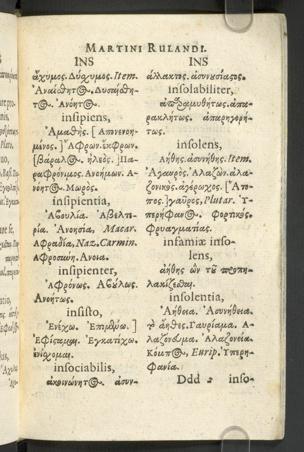 MARTINI RULANDI.
INS
ἄχυμος. Δύχυμος. Item.
Ἀναίσθητος. Δυσαίσθη-
τος. Ἀνόητος.
insipiens,
Ἀμαθής. [Ἀπονενοη-
μένος.] Ἄφρων. ἔκφρων.
[βαραλος. ἠλεός.] Πα-
ραφρόνιμος. Ἀνοήμων. Ἀ-
νόητος. Μωρός.
insipientia,
Ἀβουλία. Ἀβελτε-
ρία. Ἀνοησία, Macar.
Ἀφραδία, Naz. Carmin.
Ἀφροσύνη. Ἄνοια.
insipienter,
Ἀφρόνως. Ἀβούλως.
Ἀνοήτως.
insisto,
Ἐνέχω. Ἐπιμένω.]
Ἐφίσταμαι. Ἐγκατέχω.
ἐνέχομαι.
insociabilis,
ἀκοινώνητος. ἀσυν-
INS
άλλακτος. ἀσυνουσίαστος.
insolabiliter,
ἀπαραμυθήτως. ἀπα-
ρακλήτως. ἀπαρηγορή-
τως.
insolens,
Ἀήθης. ἀσυνήθης. Item.
Ἀγαυρός. Ἀλαζών. ἀλα-
ζονικός. ἀγέρωχος. [Ἄτο-
πος.] γαῦρος, Plutar. Ὑ-
περήφανος. φορτικός.
Φρυαγματίας.
infamiæ inso-
lens,
ἀήθης ὢν τοῦ προπη-
λακίζεσθαι.
insolentia,
Ἀήθεια. Ἀσυνήθεια.
τὸ ἄηθες. Γαυρίαμα. Ἀ-
λαζόνευμα. Ἀλαζονεία.
Κόμπος, Eurip. Ὑπερη-
φανία.
Ddd 2 inso-